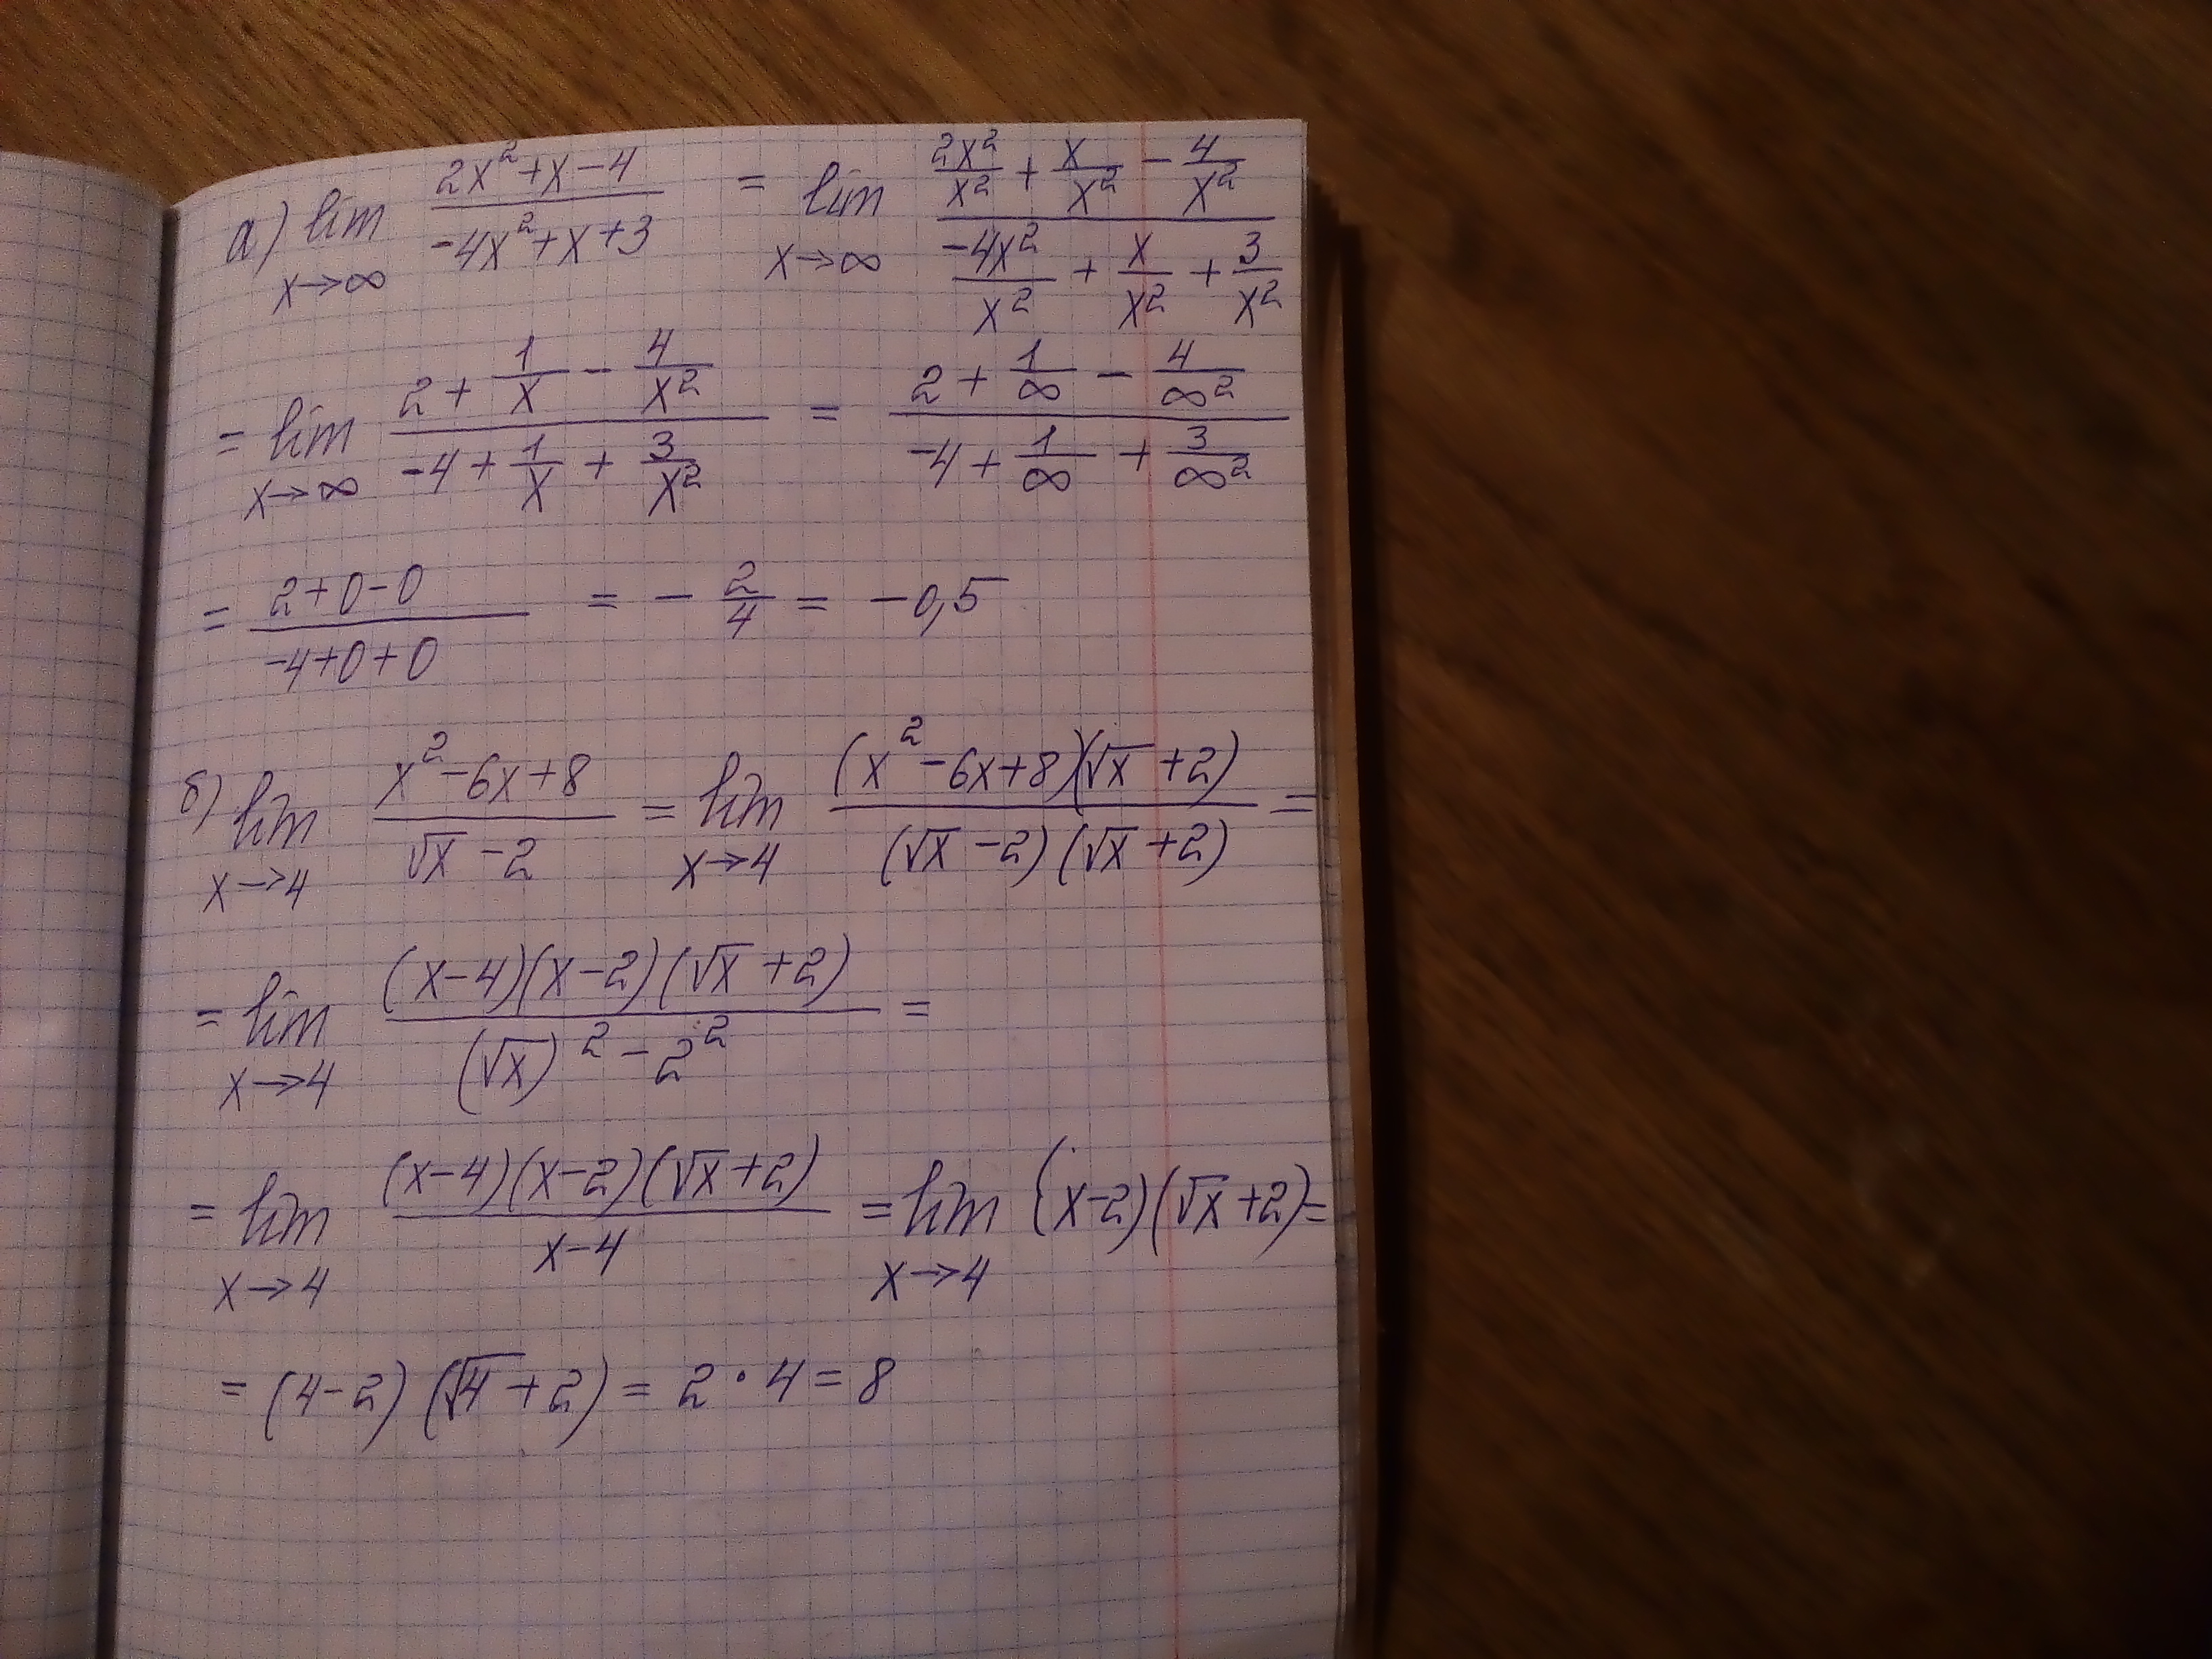 а) lim x→∞ (2x²+x-4)/(-4x²+x+3) = lim x→∞ (2x²/x² + x/x² - 4/x²)/(-4x²/x² + x/x² + 3/x²)
= lim x→∞ (2 + 1/x - 4/x²)/(-4 + 1/x + 3/x²) = (2 + 1/∞ - 4/∞²)/(-4 + 1/∞ + 3/∞²)
= (2+0-0)/(-4+0+0) = - 2/4 = -0,5
б) lim x→4 (x²-6x+8)/(√x -2) = lim x→4 ((x²-6x+8)(√x +2))/((√x -2)(√x +2)) =
= lim x→4 ((x-4)(x-2)(√x +2))/((√x)² - 2²) =
= lim x→4 ((x-4)(x-2)(√x+2))/(x-4) = lim x→4 (x-2)(√x+2) =
= (4-2)(√4+2) = 2·4 = 8